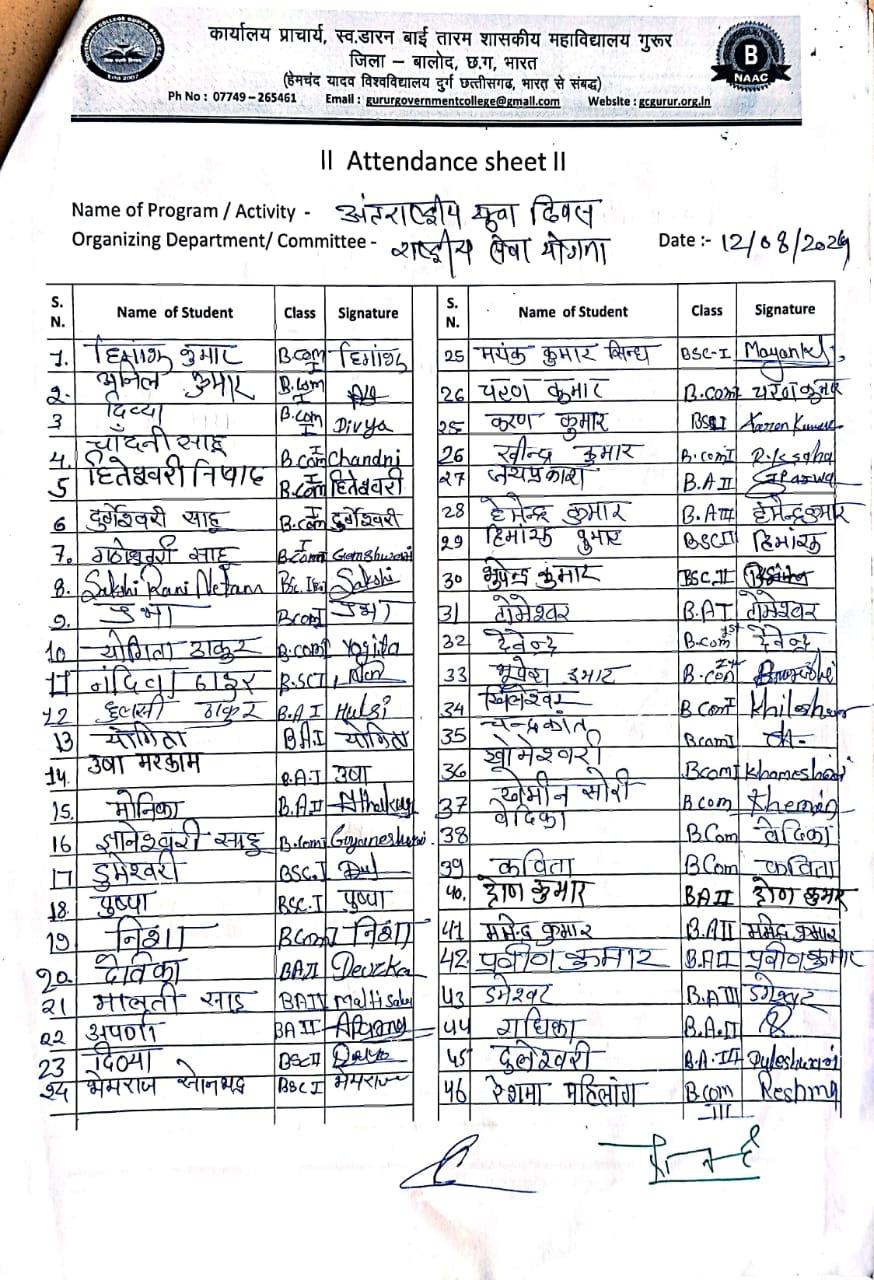 कार्यालय प्राचार्य, स्व.डारन बाई तारम शासकीय महाविद्यालय गुरूर
जिला – बालोद, छ.ग, भारत
(हेमचंद यादव विश्वविद्यालय दुर्ग छत्तीसगढ, भारत से संबद्ध)
Ph No : 07749 – 265461 Email : gururgovernmentcollege@gmail.com Website : gcgurur.org.in
B
NAAC
II Attendance sheet II
Name of Program / Activity - अंतराष्ट्रीय युवा दिवस
Organizing Department/ Committee - राष्ट्रीय सेवा योगना Date :- 12/08/2024
S. N. Name of Student Class Signature
1. हिमांशु कुमार B.com I हिमांशु
2. अनिल कुमार B.com I
3 दिव्या B.com I Divya
4. चाँदनी साहू B.com I Chandni
5 हितेश्वरी निषाद B.com I हितेश्वरी
6 दुर्गेश्वरी साहू B.com I दुर्गेश्वरी
7. साहू B.com I
8. Sakshi Rani Netam Bsc. Sakshi
9. B.com I
10 योगिता ठाकुर B.com I Yogita
11 ठाकुर B.SC I
12 हुलसी ठाकुर B.A I Hulsi
13 योगिता BA I योगिता
14. उषा मरकाम B.A.I उषा
15. मोनिका B.A.II
16 ज्ञानेश्वरी साहू B.com I
17 डुमेश्वरी BSC.I
18. पुष्पा BSC.I पुष्पा
19 निशा B.Com I निशा
20 देविका BA II
21 मालती साहू BA II Malti Sahu
22 अपर्णा BA II
23 दिव्या BSC II
24 BSC I
S. N. Name of Student Class Signature
25 मयंक कुमार सिन्हा BSC-I Mayank
26 चरण कुमार B.com I चरण कुमार
25 करण कुमार BSC I Karan Kumar
26 रवीन्द्र कुमार B.com I
27 जयप्रकाश B.A II
28 हेमेन्द्र कुमार B.A III हेमेन्द्र कुमार
29 हिमांशु कुमार BSC II हिमांशु
30 भुपेन्द्र कुमार BSC.II
31 टोमेश्वर B.A I टोमेश्वर
32 देवेन्द्र B.com 1st देवेन्द्र
33 भूपेश कुमार B.com
34 खिलेश्वर B Com I Khileshwar
35 चन्द्रकांत Bcom I
36 खोमेश्वरी Bcom I Khameshwari
37 खेमीन सोरी B com Khemin
38 वेदिका B.Com वेदिका
39 कविता B Com कविता
40. द्रोण कुमार BA II द्रोण कुमार
41 कुमार B.A II कुमार
42 प्रवीण कुमार B.A II प्रवीण कुमार
43 डोमेश्वर B.A III डोमेश्वर
44 राधिका B.A.II
45 दुलेश्वरी B.A.III Duleshwari
46 रेशमा महिलांग B.com III Reshma